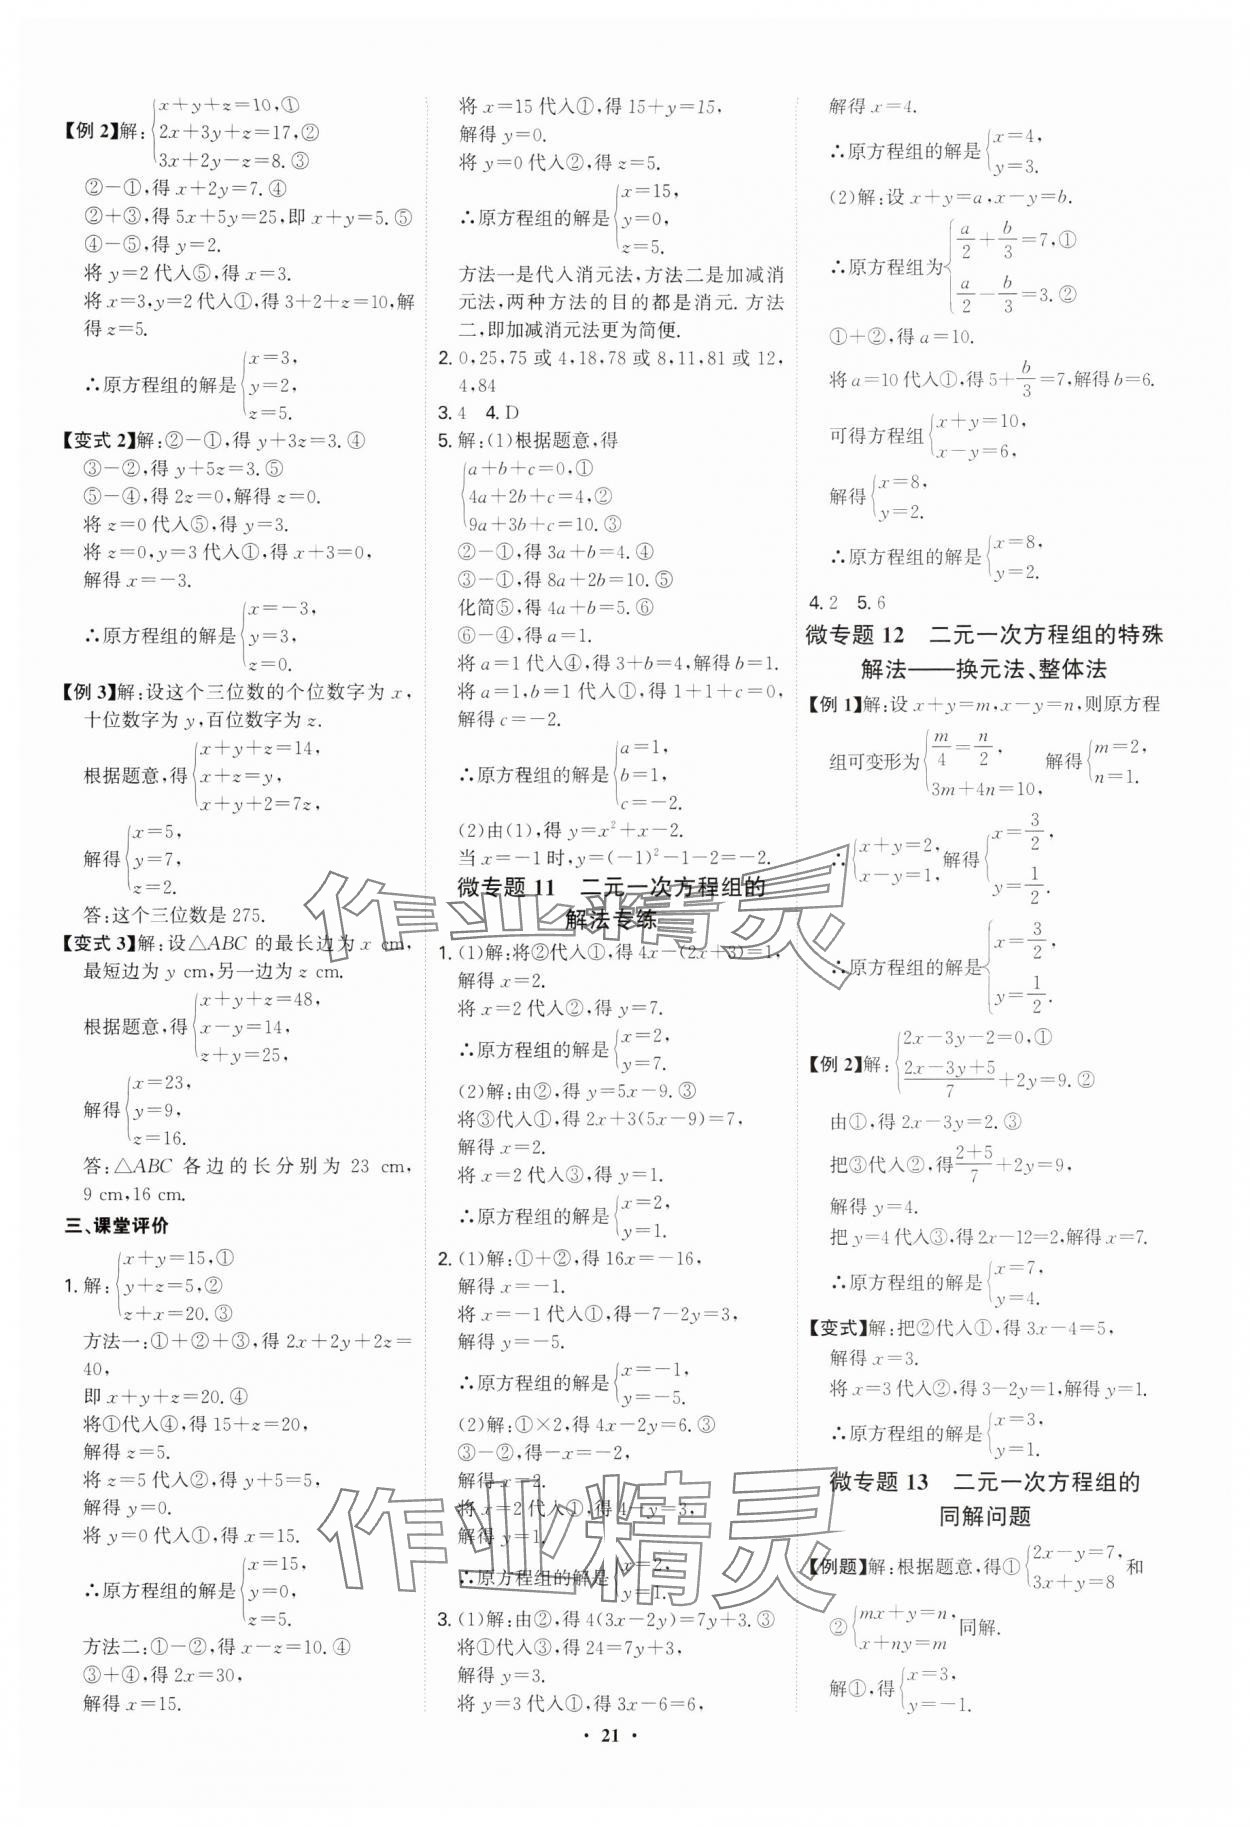 【例 2】解:{x+y+z=10,①
2x+3y+z=17,②
3x+2y-z=8.③
②-①,得 x+2y=7.④
②+③,得 5x+5y=25,即 x+y=5.⑤
④-⑤,得 y=2.
将 y=2 代入⑤,得 x=3.
将 x=3,y=2 代入①,得 3+2+z=10,解
得 z=5.
∴原方程组的解是{x=3,
y=2,
z=5.
【变式 2】解:②-①,得 y+3z=3.④
③-②,得 y+5z=3.⑤
⑤-④,得 2z=0,解得 z=0.
将 z=0 代入⑤,得 y=3.
将 z=0,y=3 代入①,得 x+3=0,
解得 x=-3.
∴原方程组的解是{x=-3,
y=3,
z=0.
【例 3】解:设这个三位数的个位数字为 x,
十位数字为 y,百位数字为 z.
根据题意,得{x+y+z=14,
x+z=y,
x+y+2=7z,
解得{x=5,
y=7,
z=2.
答:这个三位数是 275.
【变式 3】解:设△ABC 的最长边为 x cm,
最短边为 y cm,另一边为 z cm.
根据题意,得{x+y+z=48,
x-y=14,
z+y=25,
解得{x=23,
y=9,
z=16.
答:△ABC 各边的长分别为 23 cm,
9 cm,16 cm.
三、课堂评价
1. 解:{x+y=15,①
y+z=5,②
z+x=20.③
方法一:①+②+③,得 2x+2y+2z=
40,
即 x+y+z=20.④
将①代入④,得 15+z=20,
解得 z=5.
将 z=5 代入②,得 y+5=5,
解得 y=0.
将 y=0 代入①,得 x=15.
∴原方程组的解是{x=15,
y=0,
z=5.
方法二:①-②,得 x-z=10.④
③+④,得 2x=30,
解得 x=15.
将 x=15 代入①,得 15+y=15,
解得 y=0.
将 y=0 代入②,得 z=5.
∴原方程组的解是{x=15,
y=0,
z=5.
方法一是代入消元法,方法二是加减消
元法,两种方法的目的都是消元. 方法
二,即加减消元法更为简便.
2. 0,25,75 或 4,18,78 或 8,11,81 或 12,
4,84
3. 4 4. D
5. 解:(1)根据题意,得
{a+b+c=0,①
4a+2b+c=4,②
9a+3b+c=10.③
②-①,得 3a+b=4.④
③-①,得 8a+2b=10.⑤
化简⑤,得 4a+b=5.⑥
⑥-④,得 a=1.
将 a=1 代入④,得 3+b=4,解得 b=1.
将 a=1,b=1 代入①,得 1+1+c=0,
解得 c=-2.
∴原方程组的解是{a=1,
b=1,
c=-2.
(2)由(1),得 y=x²+x-2.
当 x=-1 时,y=(-1)²-1-2=-2.
微专题 11 二元一次方程组的
解法专练
1. (1)解:将②代入①,得 4x-(2x+3)=1,
解得 x=2.
将 x=2 代入②,得 y=7.
∴原方程组的解是{x=2,
y=7.
(2)解:由②,得 y=5x-9.③
将③代入①,得 2x+3(5x-9)=7,
解得 x=2.
将 x=2 代入③,得 y=1.
∴原方程组的解是{x=2,
y=1.
2. (1)解:①+②,得 16x=-16,
解得 x=-1.
将 x=-1 代入①,得-7-2y=3,
解得 y=-5.
∴原方程组的解是{x=-1,
y=-5.
(2)解:①×2,得 4x-2y=6.③
③-②,得-x=-2,
解得 x=2.
将 x=2 代入①,得 4-y=3,
解得 y=1.
∴原方程组的解是{x=2,
y=1.
3. (1)解:由②,得 4(3x-2y)=7y+3.③
将①代入③,得 24=7y+3,
解得 y=3.
将 y=3 代入①,得 3x-6=6,
解得 x=4.
∴原方程组的解是{x=4,
y=3.
(2)解:设 x+y=a,x-y=b.
∴原方程组为{a/2+b/3=7,①
a/2-b/3=3.②
①+②,得 a=10.
将 a=10 代入①,得 5+b/3=7,解得 b=6.
可得方程组{x+y=10,
x-y=6,
解得{x=8,
y=2.
∴原方程组的解是{x=8,
y=2.
4. 2 5. 6
微专题 12 二元一次方程组的特殊
解法——换元法、整体法
【例 1】解:设 x+y=m,x-y=n,则原方程
组可变形为{m/4=n/2,
3m+4n=10, 解得{m=2,
n=1.
∴{x+y=2,
x-y=1, 解得{x=3/2,
y=1/2.
∴原方程组的解是{x=3/2,
y=1/2.
【例 2】解:{2x-3y-2=0,①
(2x-3y+5)/7+2y=9.②
由①,得 2x-3y=2.③
把③代入②,得(2+5)/7+2y=9,
解得 y=4.
把 y=4 代入③,得 2x-12=2,解得 x=7.
∴原方程组的解是{x=7,
y=4.
【变式】解:把②代入①,得 3x-4=5,
解得 x=3.
将 x=3 代入②,得 3-2y=1,解得 y=1.
∴原方程组的解是{x=3,
y=1.
微专题 13 二元一次方程组的
同解问题
【例题】解:根据题意,得①{2x-y=7,
3x+y=8 和
②{mx+y=n,
x+ny=m 同解.
解①,得{x=3,
y=-1.
• 21 •
作业精灵
作业精灵